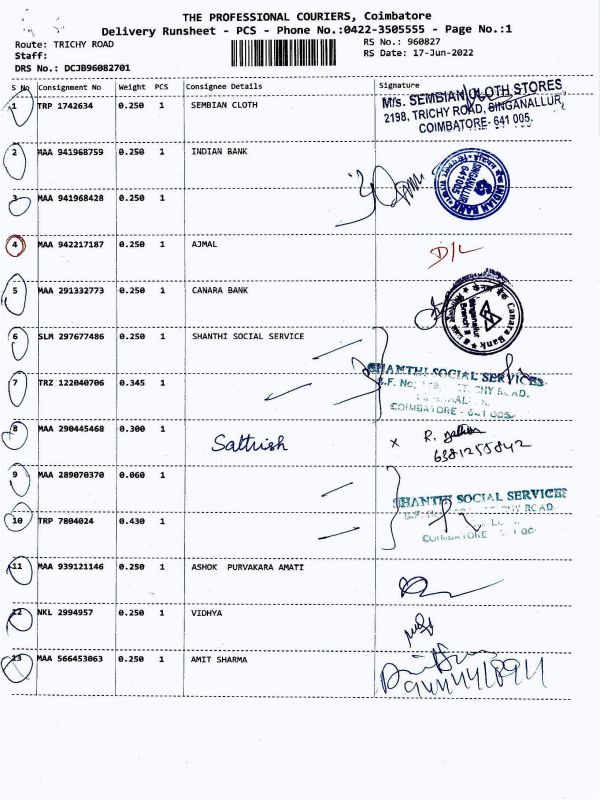 THE PROFESSIONAL COURIERS, Coimbatore
Delivery Runsheet - PCS - Phone No.:0422-3505555 - Page No.:1
Route: TRICHY ROAD
RS No.: 960827
Staff:
RS Date: 17-Jun-2022
DRS No.: DCJB96082701
S No Consignment No Weight PCS Consignee Details Signature
1 TRP 1742634 0.250 1 SEMBIAN CLOTH
M/s. SEMBIAN CLOTH STORES
2198, TRICHY ROAD, SINGANALLUR,
COIMBATORE- 641 005.
2 MAA 941968759 0.250 1 INDIAN BANK
INDIAN BANK
SINGANALLUR
641005
3 MAA 941968428 0.250 1
4 MAA 942217187 0.250 1 AJMAL D/L
5 MAA 291332773 0.250 1 CANARA BANK
Canara Bank
6 SLM 297677486 0.250 1 SHANTHI SOCIAL SERVICE
SHANTHI SOCIAL SERVICES
COIMBATORE - 641 005
7 TRZ 122040706 0.345 1
8 MAA 290445468 0.300 1 x R.
6381255842
9 MAA 289070370 0.060 1
SHANTHI SOCIAL SERVICES
10 TRP 7804024 0.430 1
11 MAA 939121146 0.250 1 ASHOK PURVAKARA AMATI
12 NKL 2994957 0.250 1 VIDHYA
13 MAA 566453063 0.250 1 AMIT SHARMA